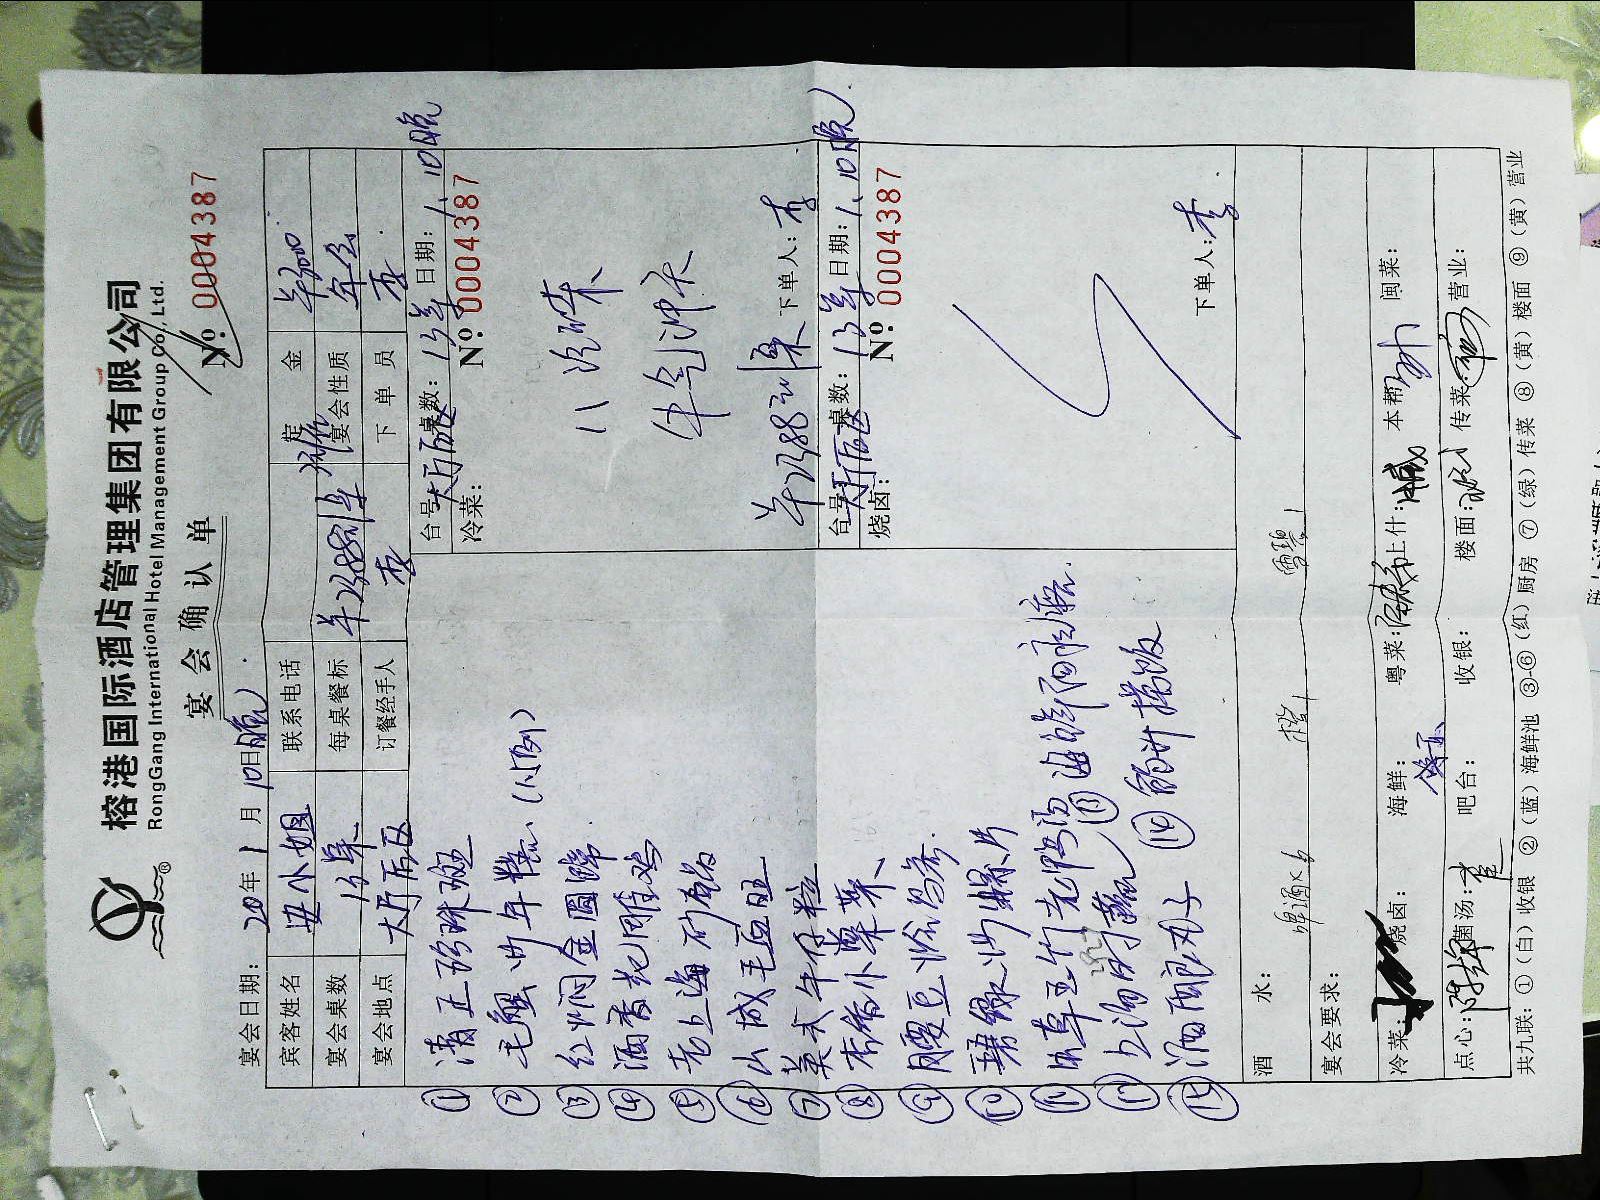 榕港国际酒店管理集团有限公司
RongGang International Hotel Management Group Co., Ltd.
宴会确认单
№: 0004387
宴会日期: 20年1月10日晚
宾客姓名 安小姐 联系电话 定金 ¥3000
宴会桌数 13桌 每桌餐标 ¥2388元/桌 宴会性质 年会
宴会地点 大厅后区 订餐经手人 李 下单员 李
① 清正珍珠斑
② 毛蟹炒年糕 (小例)
③ 红焖金圆蹄
④ 酒香花雕鸡
⑤ 老上海
⑥ 山城毛血旺
⑦ 美式牛仔粒
⑧
⑨ 腰豆
⑩ 螺片
⑪ 虫草玉竹老鸭汤
⑫ 上汤时蔬
⑬ 海鲜
⑭ 拌饭
⑮ 酒酿丸子
台号: 大厅后区 桌数: 13桌 日期: 1.10晚
冷菜: № 0004387
八冷味
牛气冲天
¥2388元/桌 下单人: 李
台号: 大厅后区 桌数: 13桌 日期: 1.10晚
烧卤: № 0004387
下单人: 李
酒水: 啤酒×6 橙1 雪碧1
宴会要求:
冷菜: 烧卤: 海鲜: 粤菜: 上什: 本帮: 闽菜:
点心: 菌汤: 吧台: 收银: 楼面: 传菜: 营业:
共九联: ①(白)收银 ②(蓝)海鲜池 ③-⑥(红)厨房 ⑦(绿)传菜 ⑧(黄)楼面 ⑨(黄)营业